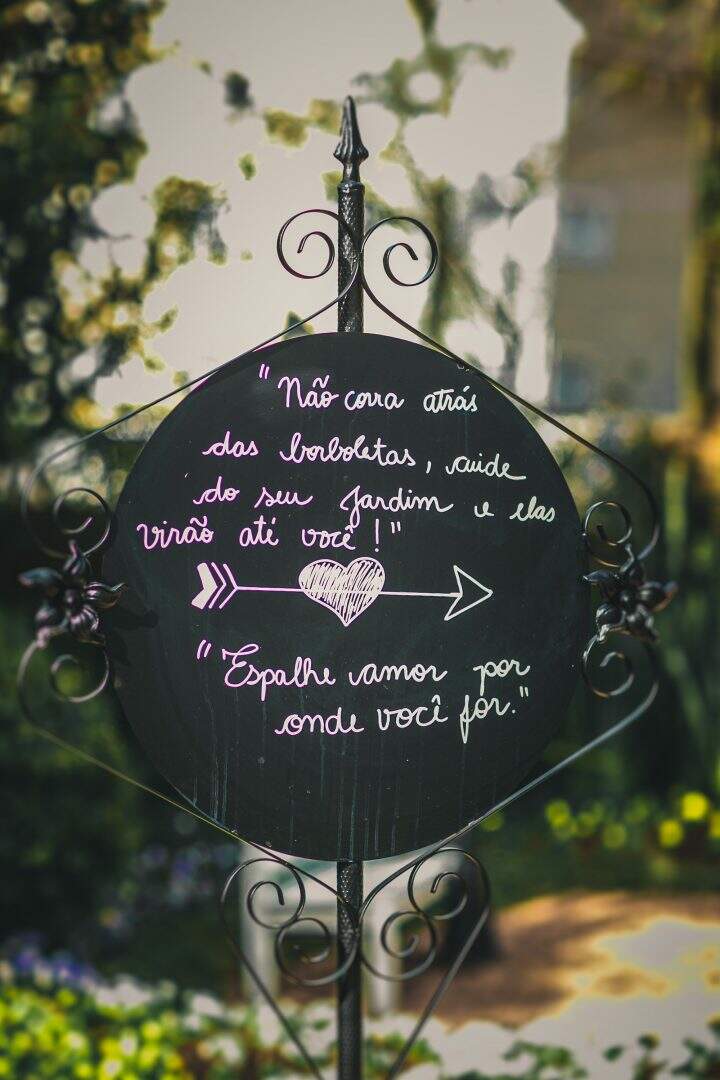 "Não corra atrás
das borboletas, cuide
do seu jardim e elas
virão até você!"
"Espalhe amor por
onde você for."